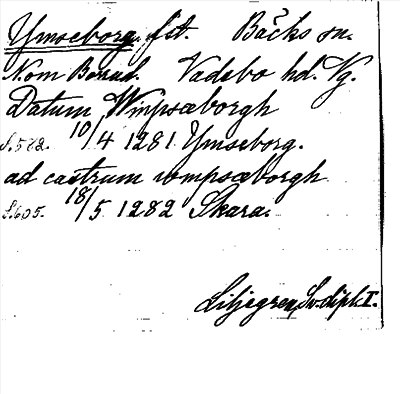 Ymseborg. fst. Bäcks sn.
Nom Bonad. Vadsbo hd. Vg.
Datum Wmpsæborgh
S. 572. 10/4 1281 Ymseborg.
ad castrum wmpsæborgh
S. 605. 18/5 1282 Skara.
Liljegren, Sv. dipl. I.